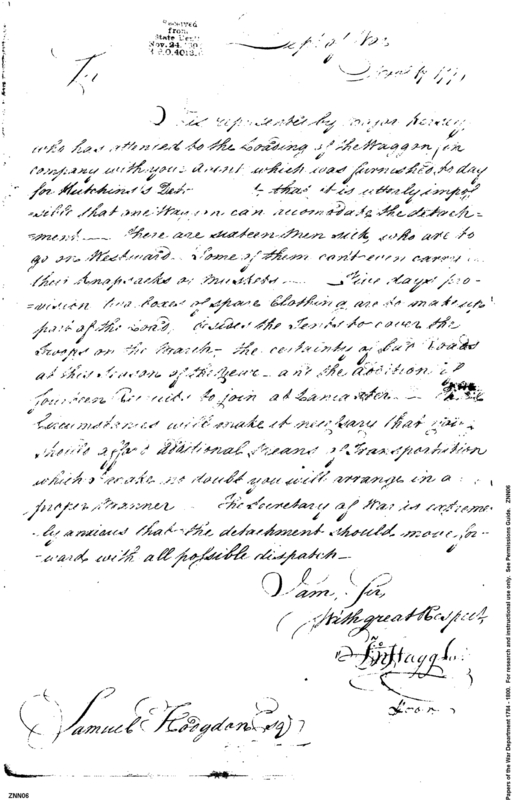 Received
from
State Dept.
Nov. 24, 190
Dept of War
Sir
It is represented by Major Kersey
who has attended to the Loading of the Waggon, in
company with your Agent which was furnished to day
for Hutchins's Det that it is utterly impos
sible that one Waggon can accomodate the detach=
ment — There are sixteen Men sick, who are to
go on Westward — Some of them cant even carry
their knapsacks or Muskets — Five days pro-
=vision two boxes of spare Clothing are to make up
part of the Load, besides the Tents to cover the
Troops on the March — the certainty of bad Roads
at this Season of the Year — and the addition of
fourteen Recruits to join at Lancaster — These
Circumstances will make it necessary that you
should afford additional Means of Transportation
which I make no doubt you will arrange in a
proper Manner — The Secretary of War is extreme
ly anxious that the detachment should move for-
-ward with all possible dispatch —
I am, Sir,
With great Respect
Jno Stagg Jr
Samuel Hodgdon Esqr
ZNN06
Papers of the War Department 1784 - 1800. For research and instructional use only. See Permissions Guide. ZNN06